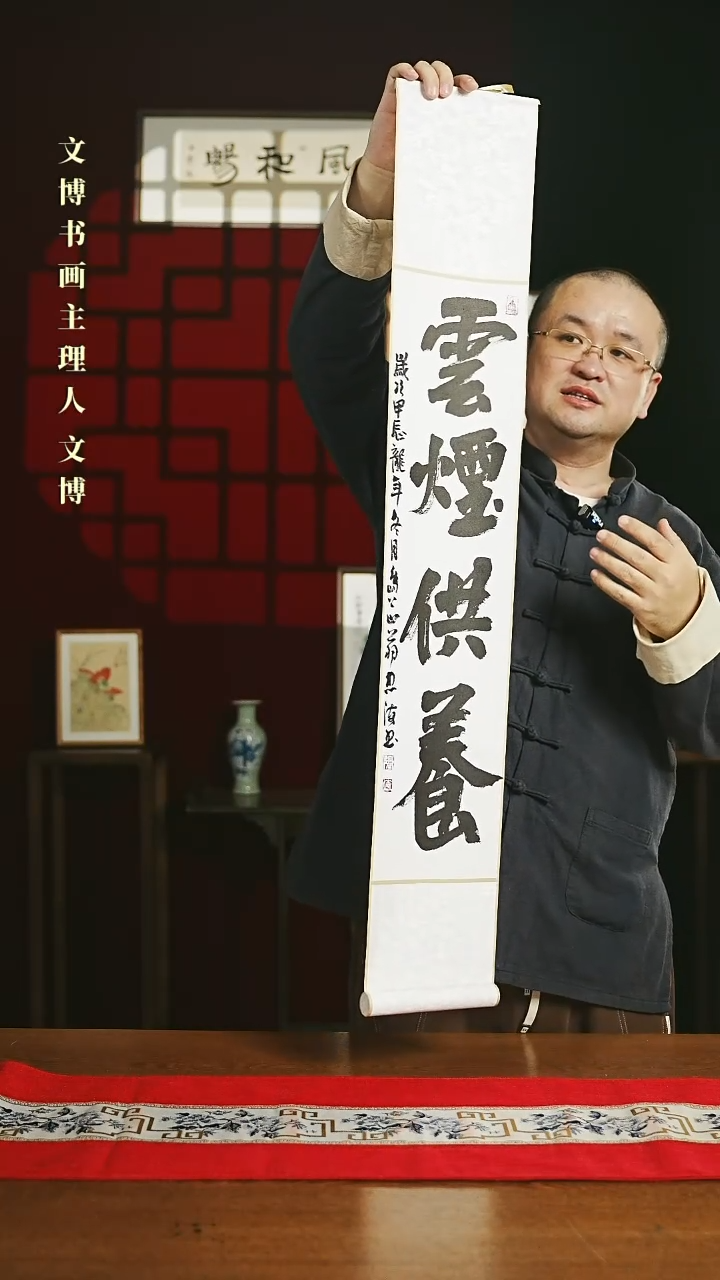 文博书画主理人文博
風和暢
雲煙供養
歲次甲辰龍年冬月